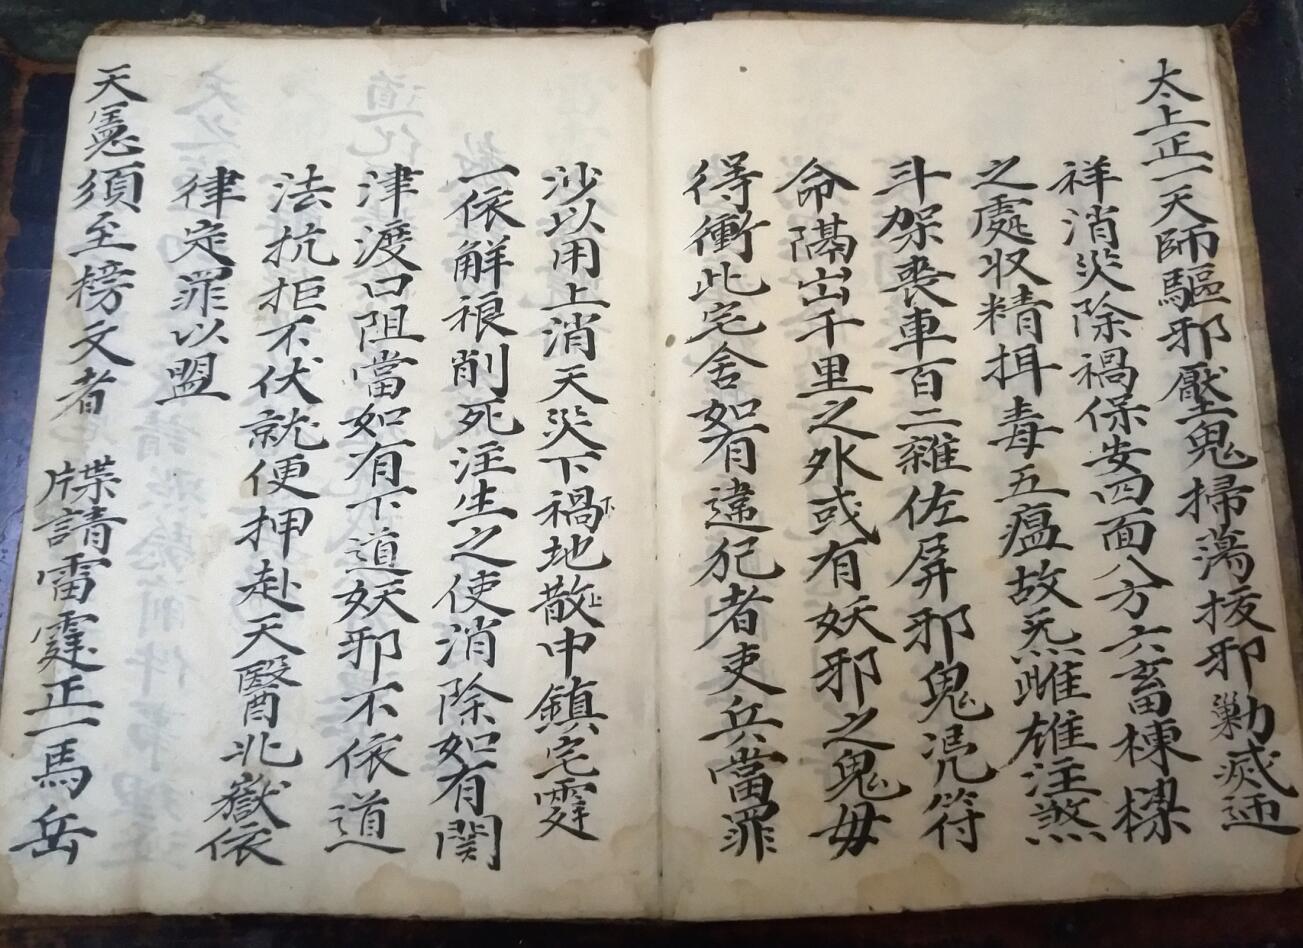 太上正一天師驅邪壓鬼掃蕩拔邪勦滅迊
祥消災除禍保安四面八方六畜棟樑
之處収精揖毒五瘟故炁雌雄注煞
斗架喪車百二雜佐屏邪鬼凴符
命隔出千里之外或有妖邪之鬼毋
得衝此宅舍如有違犯者吏兵當罪
沙以用上消天災下禍下地散上中鎮宅霆
一依解祿削死注生之使消除如有関
津渡口阻當如有不道妖邪不依道
法抗拒不伏就便押赴天醫北嶽依
律定罪以盟
天憲須至榜文者 牒請雷霆正一馬岳